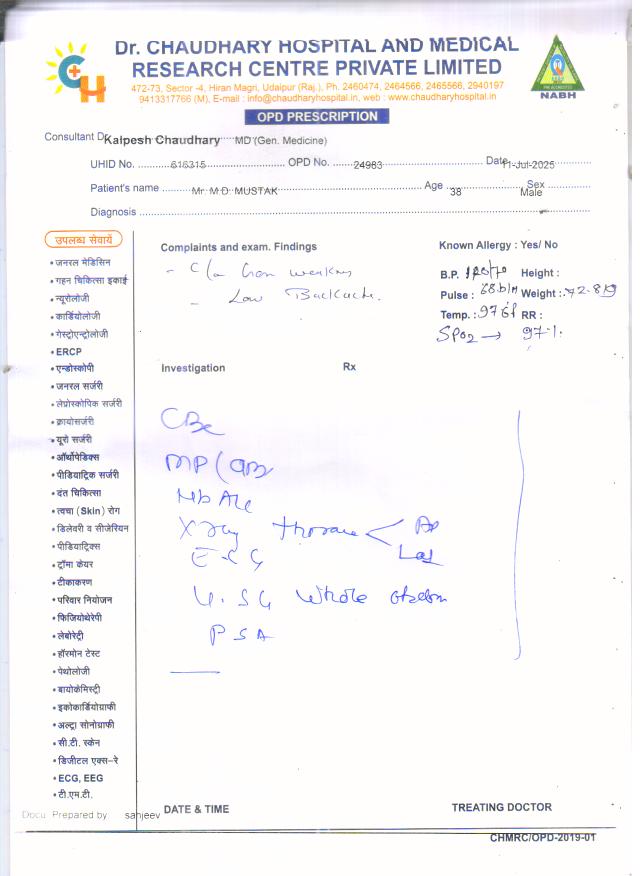 Dr. CHAUDHARY HOSPITAL AND MEDICAL
RESEARCH CENTRE PRIVATE LIMITED
472-73, Sector -4, Hiran Magri, Udaipur (Raj.), Ph. 2460474, 2464566, 2465566, 2940197
9413317766 (M), E-mail : info@chaudharyhospital.in, web : www.chaudharyhospital.in
NABH
OPD PRESCRIPTION
Consultant Dr. Kalpesh Chaudhary MD (Gen. Medicine)
UHID No. 616315 OPD No. 24983 Date 11-Jul-2025
Patient's name Mr. M.D. MUSTAK Age 38 Sex Male
Diagnosis
Complaints and exam. Findings
Known Allergy : Yes/ No
- C/o
- Low Backache.
B.P. Height :
Pulse : 68 b/m Weight : 72.8 kg
Temp. : 97.6f RR :
SPO2 → 97%
Investigation Rx
CBC
MP (
X ray
ECG
U.SG Whole
PSA
उपलब्ध सेवायें
• जनरल मेडिसिन
• गहन चिकित्सा इकाई
• न्यूरोलोजी
• कार्डियोलोजी
• गेस्ट्रोएन्ट्रोलोजी
• ERCP
• एन्डोस्कोपी
• जनरल सर्जरी
• लेप्रोस्कोपिक सर्जरी
• क्रायोसर्जरी
• यूरो सर्जरी
• ऑर्थोपेडिक्स
• पीडियाट्रिक सर्जरी
• दंत चिकित्सा
• त्वचा (Skin) रोग
• डिलेवरी व सीजेरियन
• पीडियाट्रिक्स
• ट्रॉमा केयर
• टीकाकरण
• परिवार नियोजन
• फिजियोथेरेपी
• लेबोरेट्री
• हॉरमोन टेस्ट
• पेथोलोजी
• बायोकेमिस्ट्री
• इकोकार्डियोग्राफी
• अल्ट्रा सोनोग्राफी
• सी.टी. स्केन
• डिजीटल एक्स-रे
• ECG, EEG
• टी.एम.टी.
Docu Prepared by sanjeev
DATE & TIME TREATING DOCTOR
CHMRC/OPD-2019-01